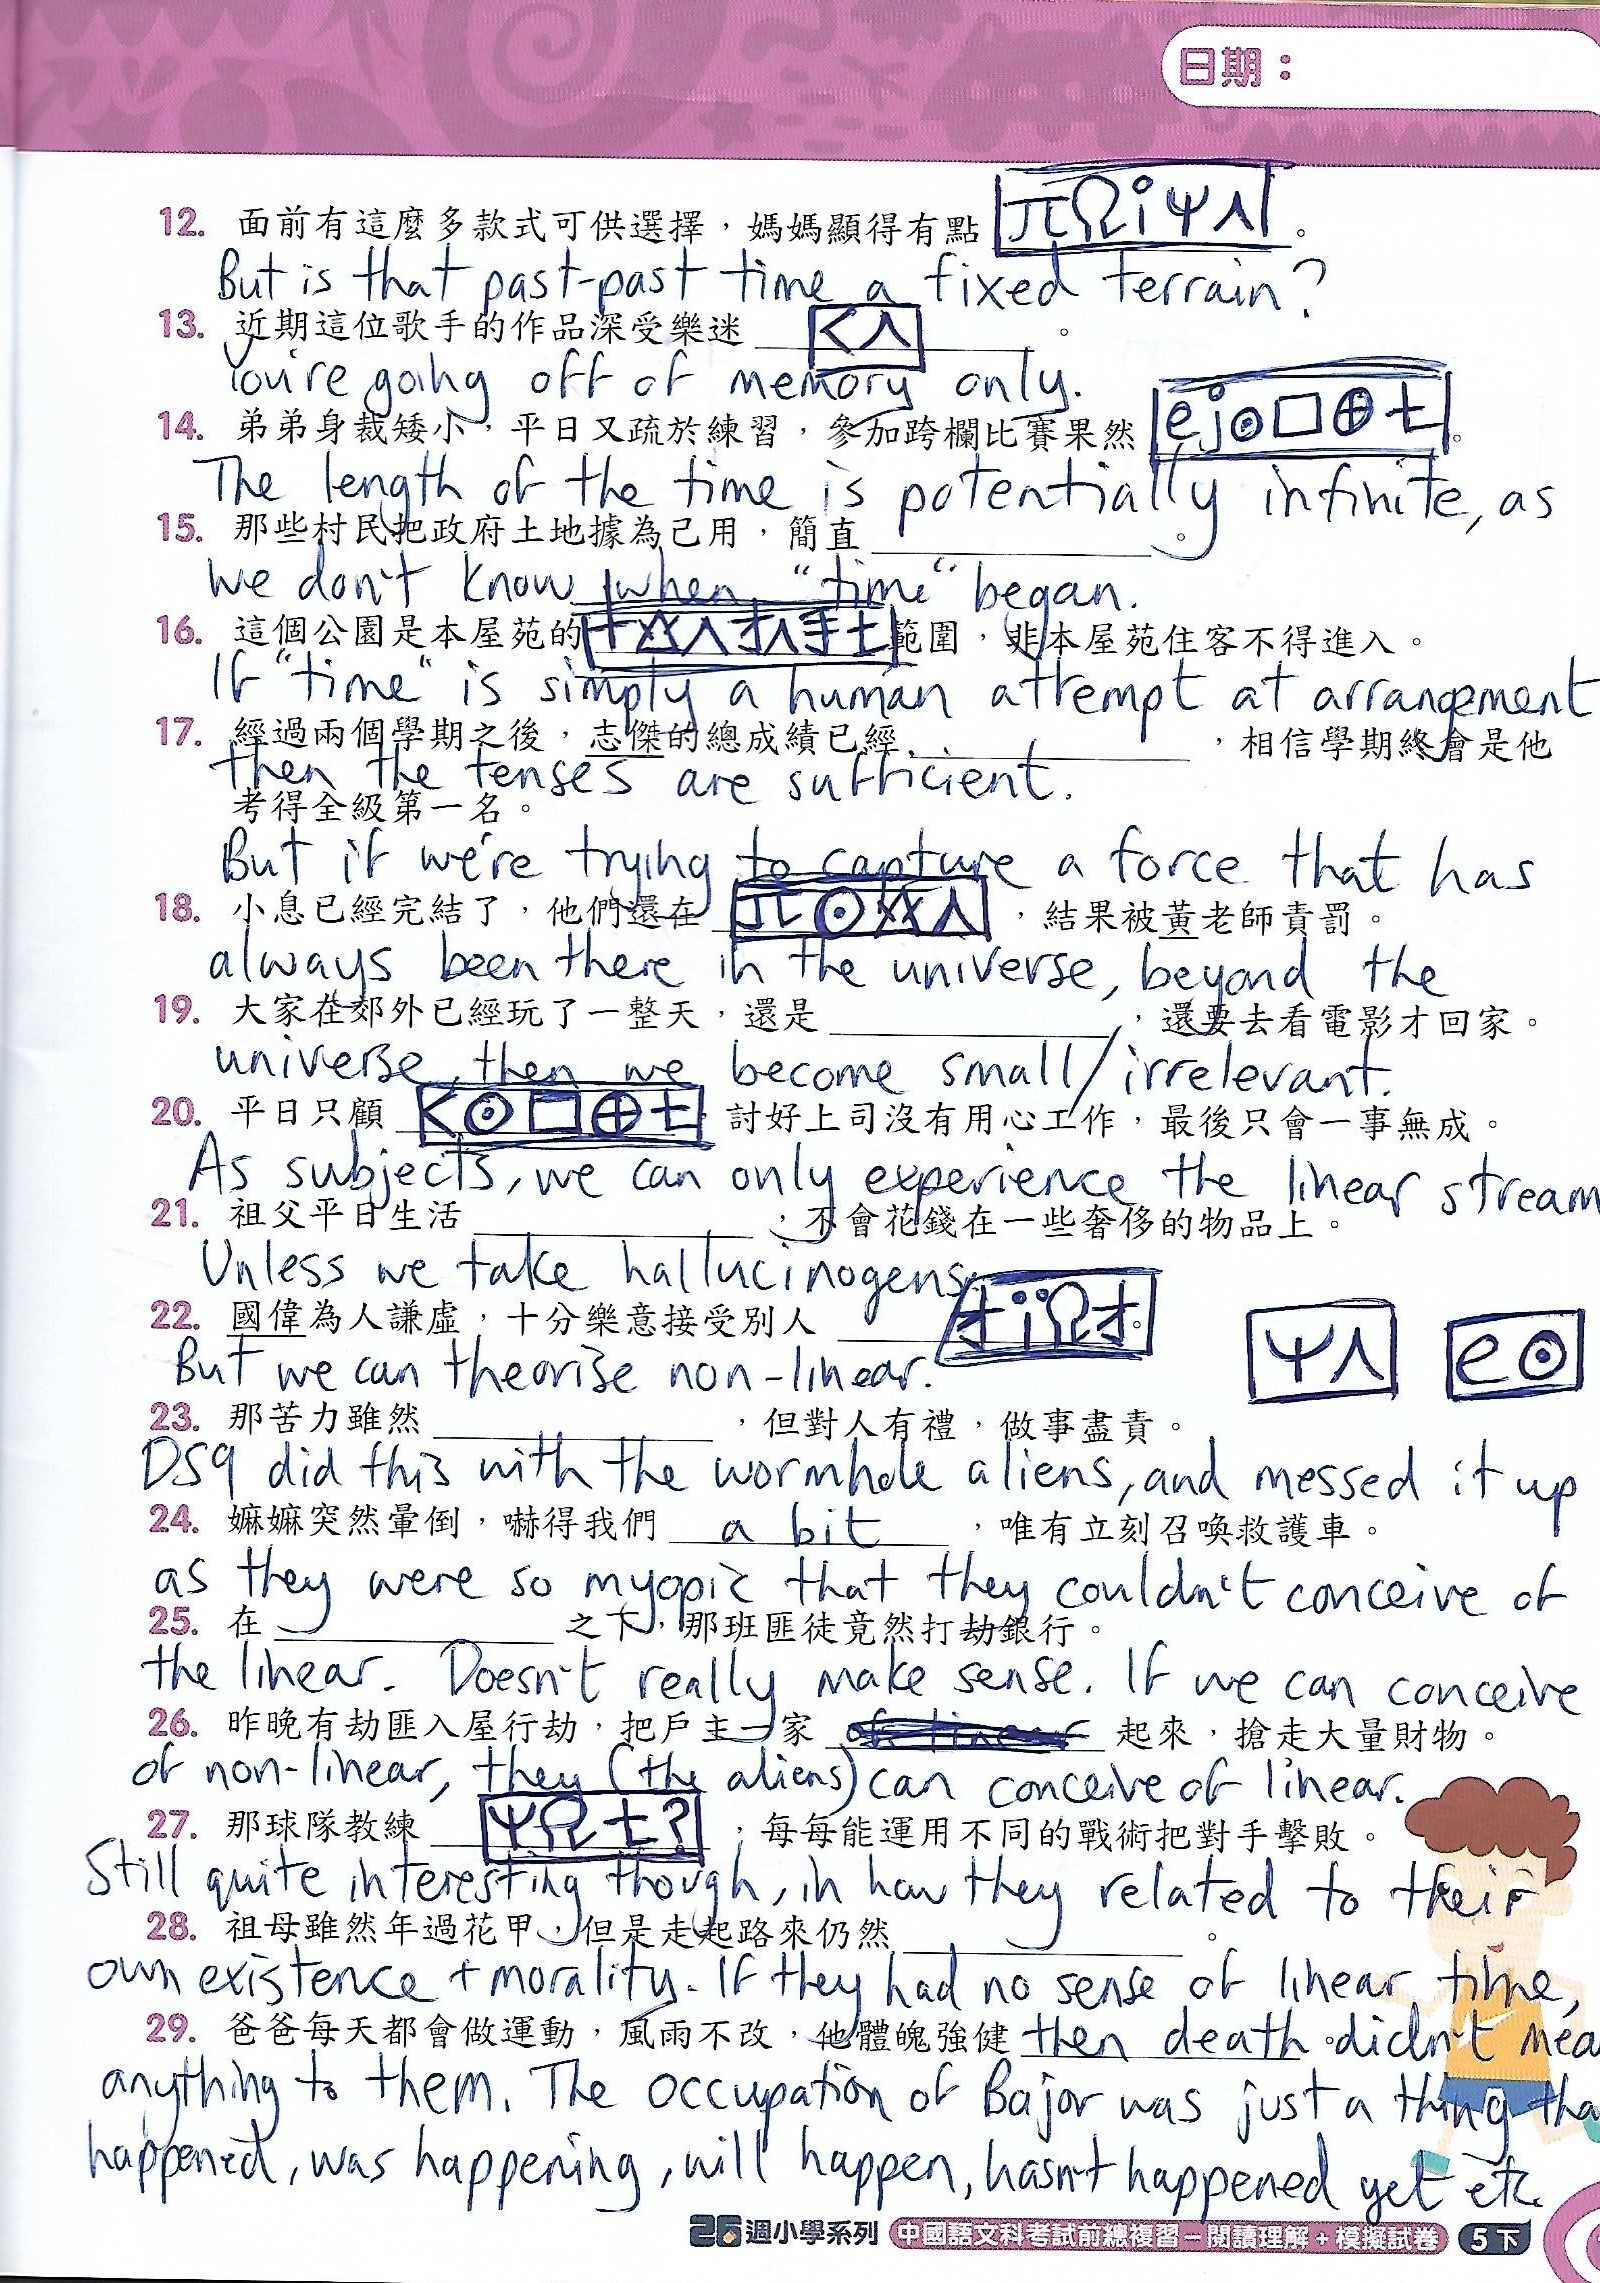 日期：
12. 面前有這麼多款式可供選擇，媽媽顯得有點 。
But is that past-past time a fixed terrain?
13. 近期這位歌手的作品深受樂迷 。
You're going off of memory only.
14. 弟弟身裁矮小，平日又疏於練習，參加跨欄比賽果然 。
The length of the time is potentially infinite, as
15. 那些村民把政府土地據為己用，簡直 。
we don't know when "time" began.
16. 這個公園是本屋苑的 範圍，非本屋苑住客不得進入。
If "time" is simply a human attempt at arrangement
17. 經過兩個學期之後，志傑的總成績已經 ，相信學期終會是他
then the tenses are sufficient.
考得全級第一名。
But if we're trying to capture a force that has
18. 小息已經完結了，他們還在 ，結果被黃老師責罰。
always been there in the universe, beyond the
19. 大家在郊外已經玩了一整天，還是 ，還要去看電影才回家。
universe, then we become small/irrelevant.
20. 平日只顧 討好上司沒有用心工作，最後只會一事無成。
As subjects, we can only experience the linear stream
21. 祖父平日生活 ，不會花錢在一些奢侈的物品上。
Unless we take hallucinogens.
22. 國偉為人謙虛，十分樂意接受別人 。
But we can theorise non-linear.
23. 那苦力雖然 ，但對人有禮，做事盡責。
DS9 did this with the wormhole aliens, and messed it up
24. 嫲嫲突然暈倒，嚇得我們 a bit ，唯有立刻召喚救護車。
as they were so myopic that they couldn't conceive of
25. 在 之下，那班匪徒竟然打劫銀行。
the linear. Doesn't really make sense. If we can conceive
26. 昨晚有劫匪入屋行劫，把戶主一家 起來，搶走大量財物。
of non-linear, they (the aliens) can conceive of linear.
27. 那球隊教練 ，每每能運用不同的戰術把對手擊敗。
Still quite interesting though, in how they related to their
28. 祖母雖然年過花甲，但是走起路來仍然 。
own existence + morality. If they had no sense of linear time,
29. 爸爸每天都會做運動，風雨不改，他體魄強健 then death 。didn't mea
anything to them. The occupation of Bajor was just a thing tha
happened, was happening, will happen, hasn't happened yet etc.
26週小學系列 中國語文科考試前總複習－閱讀理解＋模擬試卷 5下